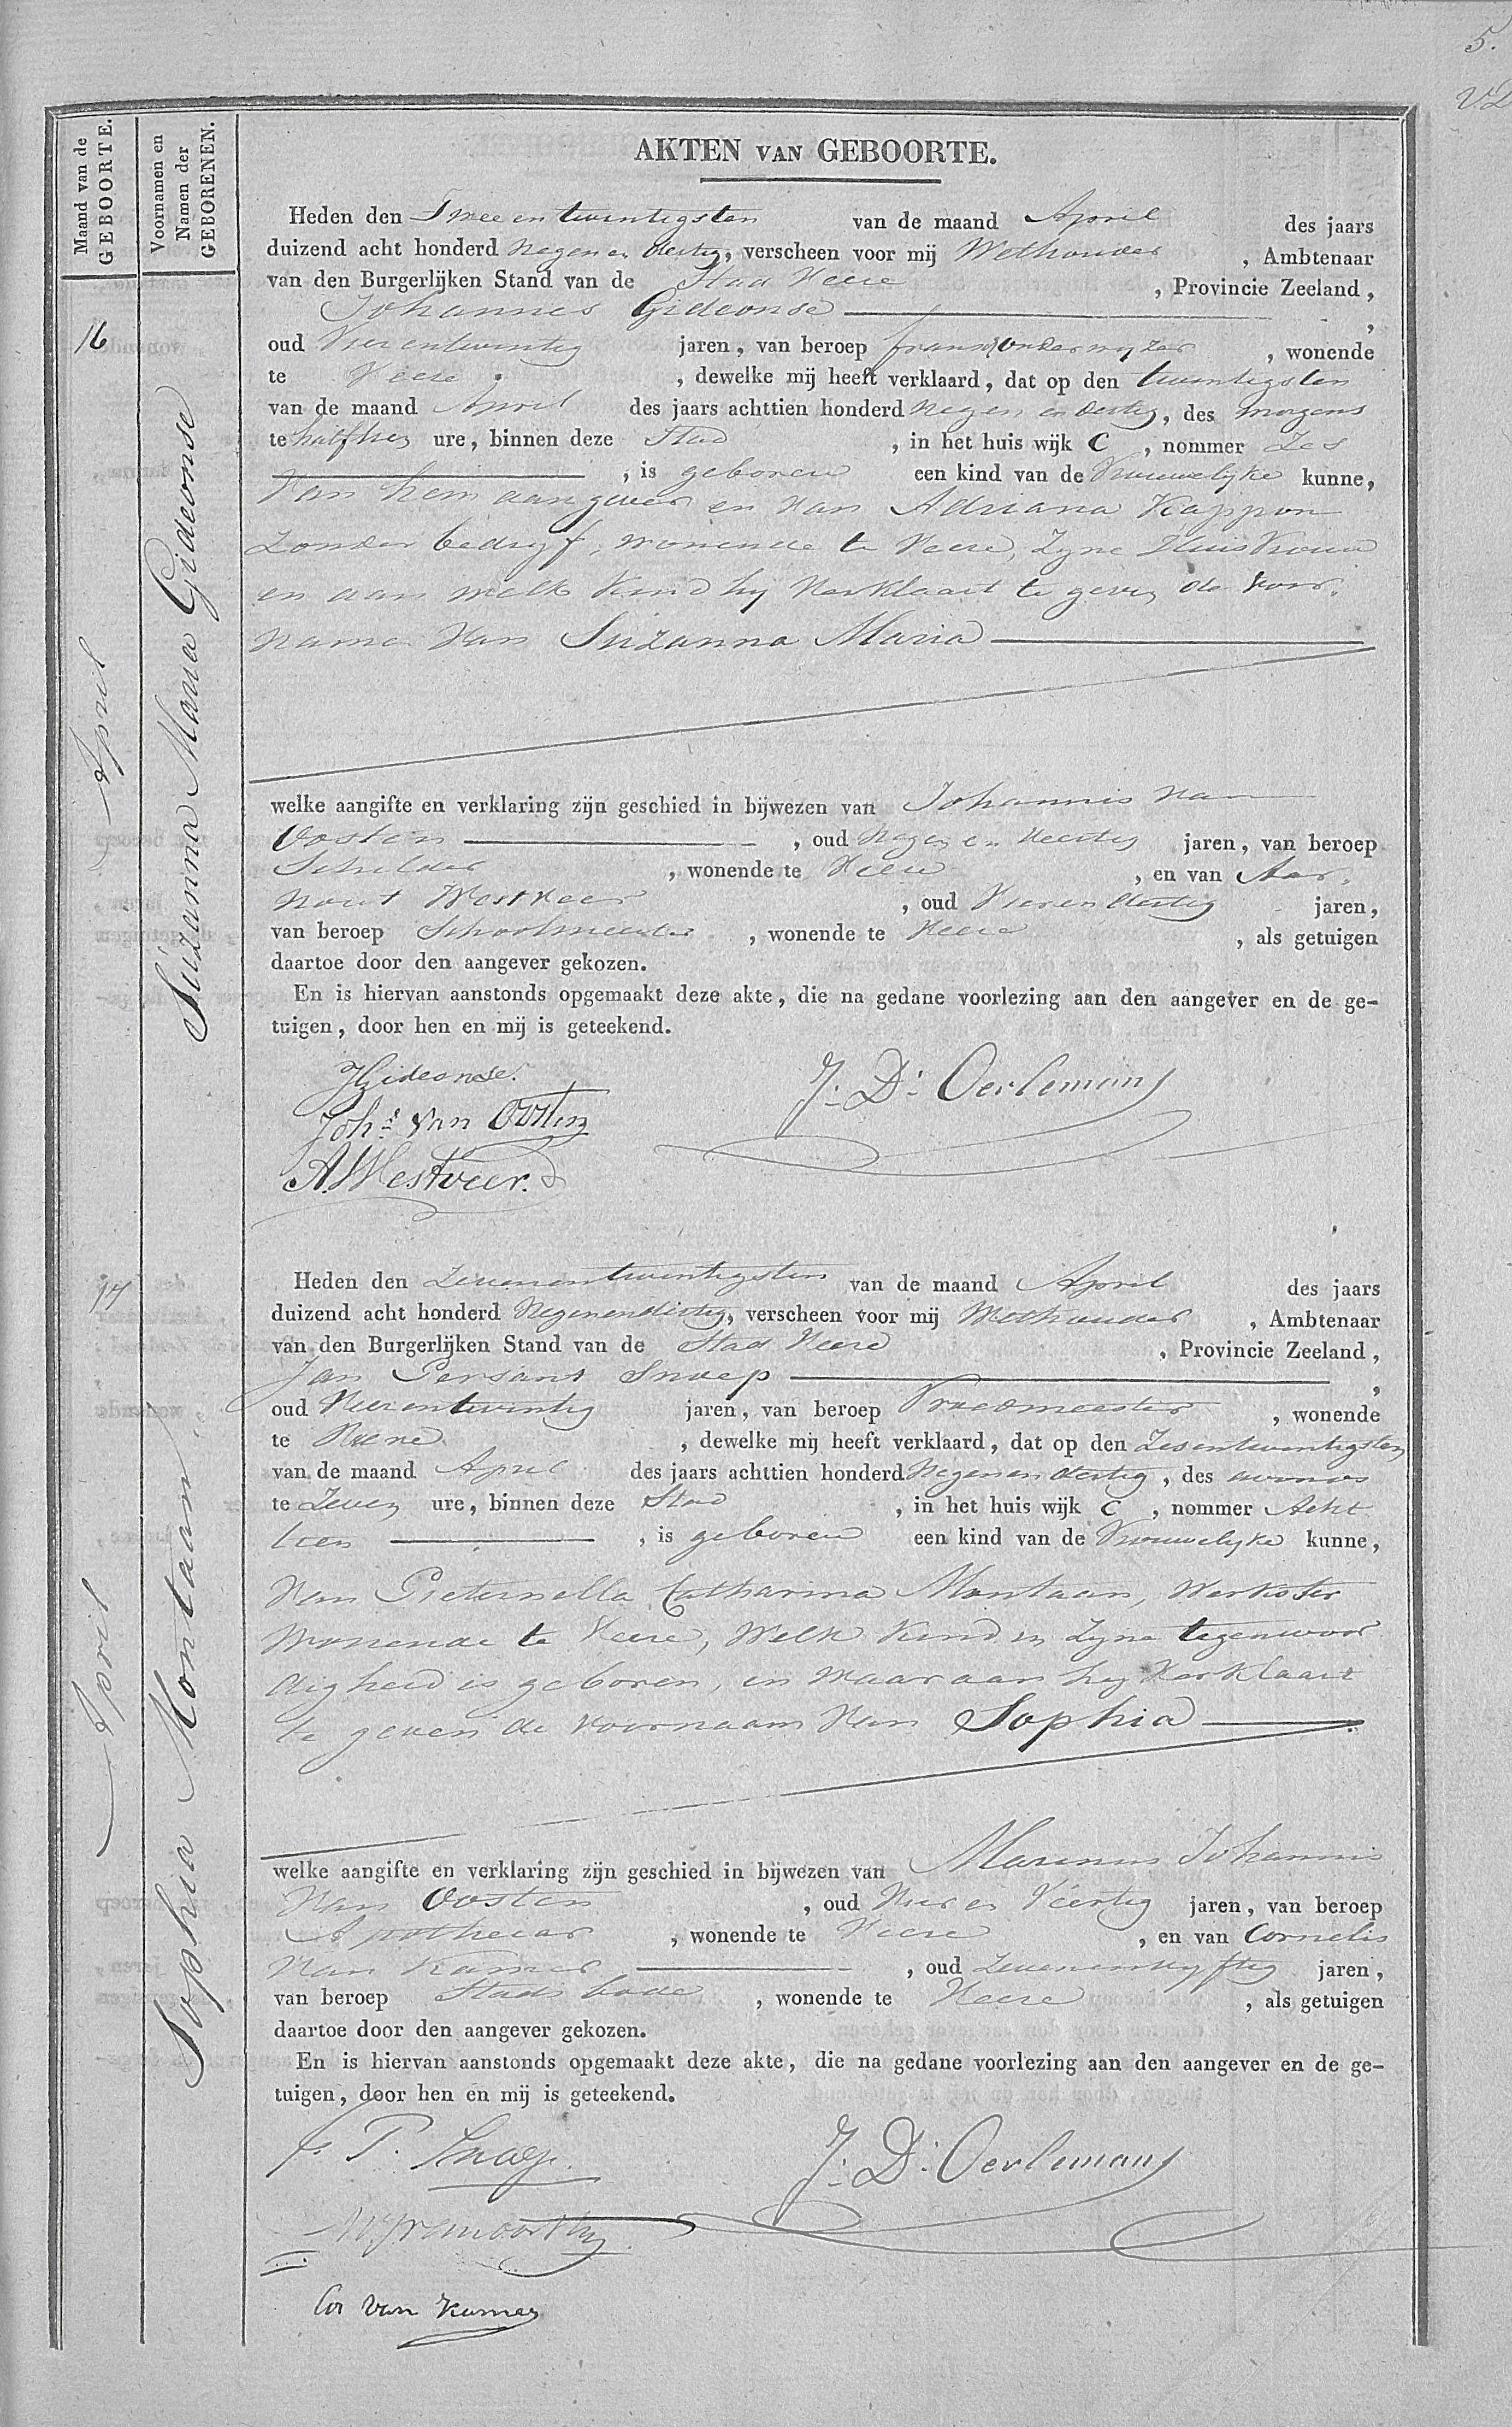 5.
Maand van de
GEBOORTE.
Voornamen en
Namen der
GEBORENEN.
AKTEN VAN GEBOORTE.
16
April
Suzanna Maria Gideonse
Heden den Twee en twintigsten van de maand April des jaars
duizend acht honderd Negen en dertig, verscheen voor mij Wethouder, Ambtenaar
van den Burgerlijken Stand van de Stad Veere, Provincie Zeeland,
Johannes Gideonse,
oud Vier en twintig jaren, van beroep fransch onderwyzer, wonende
te Veere, dewelke mij heeft verklaard, dat op den twintigsten
van de maand April des jaars achttien honderd Negen en dertig, des morgens
te half ure, binnen deze Stad, in het huis wijk C, nommer Zes
, is geboren een kind van de Vrouwelyke kunne,
Van hem aangever en Van Adriana Kappon
zonder bedryf, wonende te Veere, zyne Huisvrouw
en aan welk Kind hy Verklaart te geven de voor-
name Van Suzanna Maria
welke aangifte en verklaring zijn geschied in bijwezen van Johannis van
Oosten, oud Negen en Veertig jaren, van beroep
Schilder, wonende te Veere, en van Aar-
nout Westveer, oud Vier en dertig jaren,
van beroep Schoolmeester, wonende te Veere, als getuigen
daartoe door den aangever gekozen.
En is hiervan aanstonds opgemaakt deze akte, die na gedane voorlezing aan den aangever en de ge-
tuigen, door hen en mij is geteekend.
JGideonse.
J. D. Oerlemans
Johs. van Oosten
A. Westveer.
17
April
Sophia Montaan
Heden den Zevenentwintigsten van de maand April des jaars
duizend acht honderd Negenendertig, verscheen voor mij Wethouder, Ambtenaar
van den Burgerlijken Stand van de Stad Veere, Provincie Zeeland,
Jan Persant Snoep,
oud Vierentwintig jaren, van beroep Vroedmeester, wonende
te Veere, dewelke mij heeft verklaard, dat op den Zesentwintigsten
van de maand April des jaars achttien honderd Negen en dertig, des avonds
te Zeven ure, binnen deze Stad, in het huis wijk C, nommer Acht
tien, is geboren een kind van de Vrouwelyke kunne,
Van Pieternella Catharina Montaan, Werkster
Wonende te Veere, Welk Kind in Zyne tegenwoor
digheid is geboren, en waaraan hy Verklaart
te geven de voornaam Van Sophia
welke aangifte en verklaring zijn geschied in bijwezen van Marinus Johannis
Van Oosten, oud Vier en Veertig jaren, van beroep
Apothecar, wonende te Veere, en van Cornelis
Van Kamer, oud Zevenenvyftig jaren,
van beroep Stads bode, wonende te Veere, als getuigen
daartoe door den aangever gekozen.
En is hiervan aanstonds opgemaakt deze akte, die na gedane voorlezing aan den aangever en de ge-
tuigen, door hen en mij is geteekend.
J. P. Snoep.
J. D. Oerlemans
Cor van Kamer